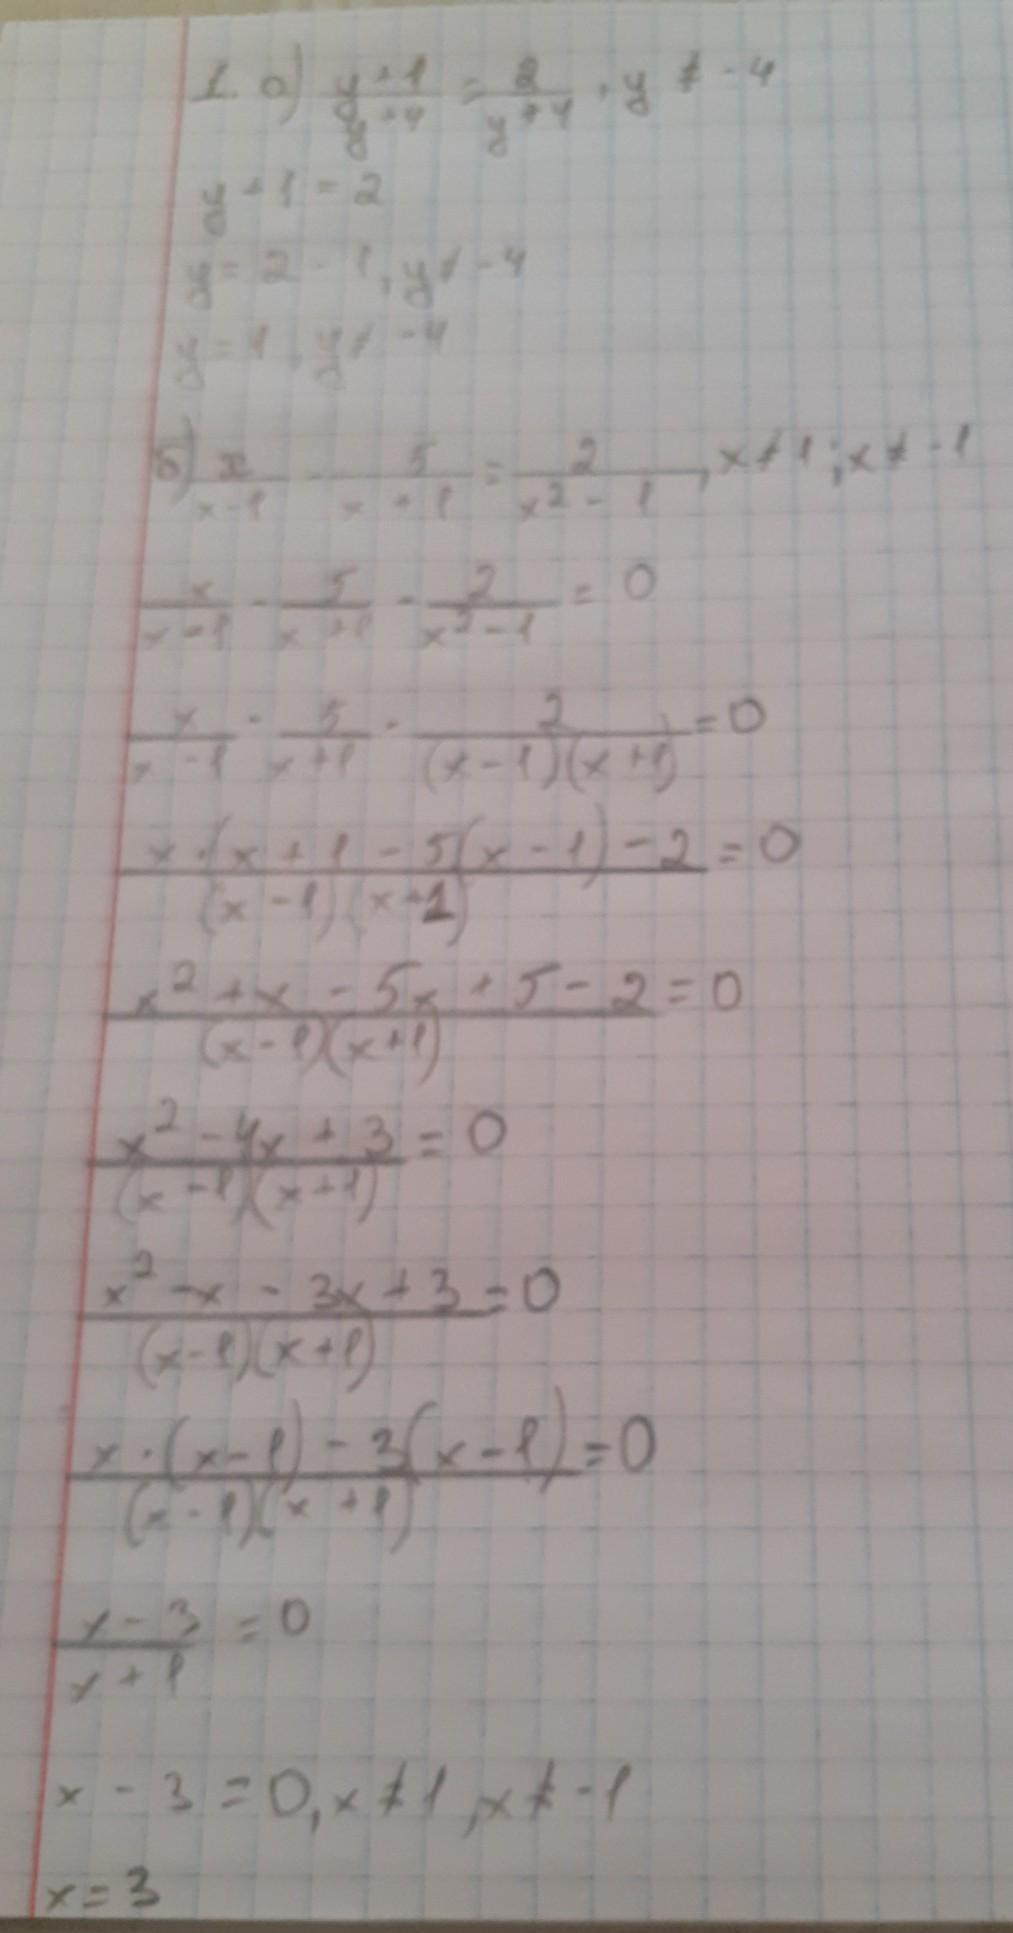 1. а) (y+1)/(y+4) = 2/(y+4), y ≠ -4
y + 1 = 2
y = 2 - 1, y ≠ -4
y = 1, y ≠ -4
б) x/(x-1) - 5/(x+1) = 2/(x² - 1), x ≠ 1; x ≠ -1
x/(x-1) - 5/(x+1) - 2/(x²-1) = 0
x/(x-1) - 5/(x+1) - 2/((x-1)(x+1)) = 0
(x·(x+1 - 5(x-1) - 2)/((x-1)(x+1)) = 0
(x² + x - 5x + 5 - 2)/((x-1)(x+1)) = 0
(x² - 4x + 3)/((x-1)(x+1)) = 0
(x² - x - 3x + 3)/((x-1)(x+1)) = 0
(x·(x-1) - 3(x-1))/((x-1)(x+1)) = 0
(x-3)/(x+1) = 0
x - 3 = 0, x ≠ 1, x ≠ -1
x = 3